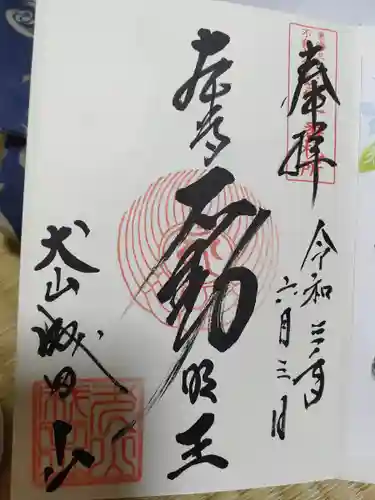 奉拝
令和三年
六月三日
本尊
不動明王
犬山成田山